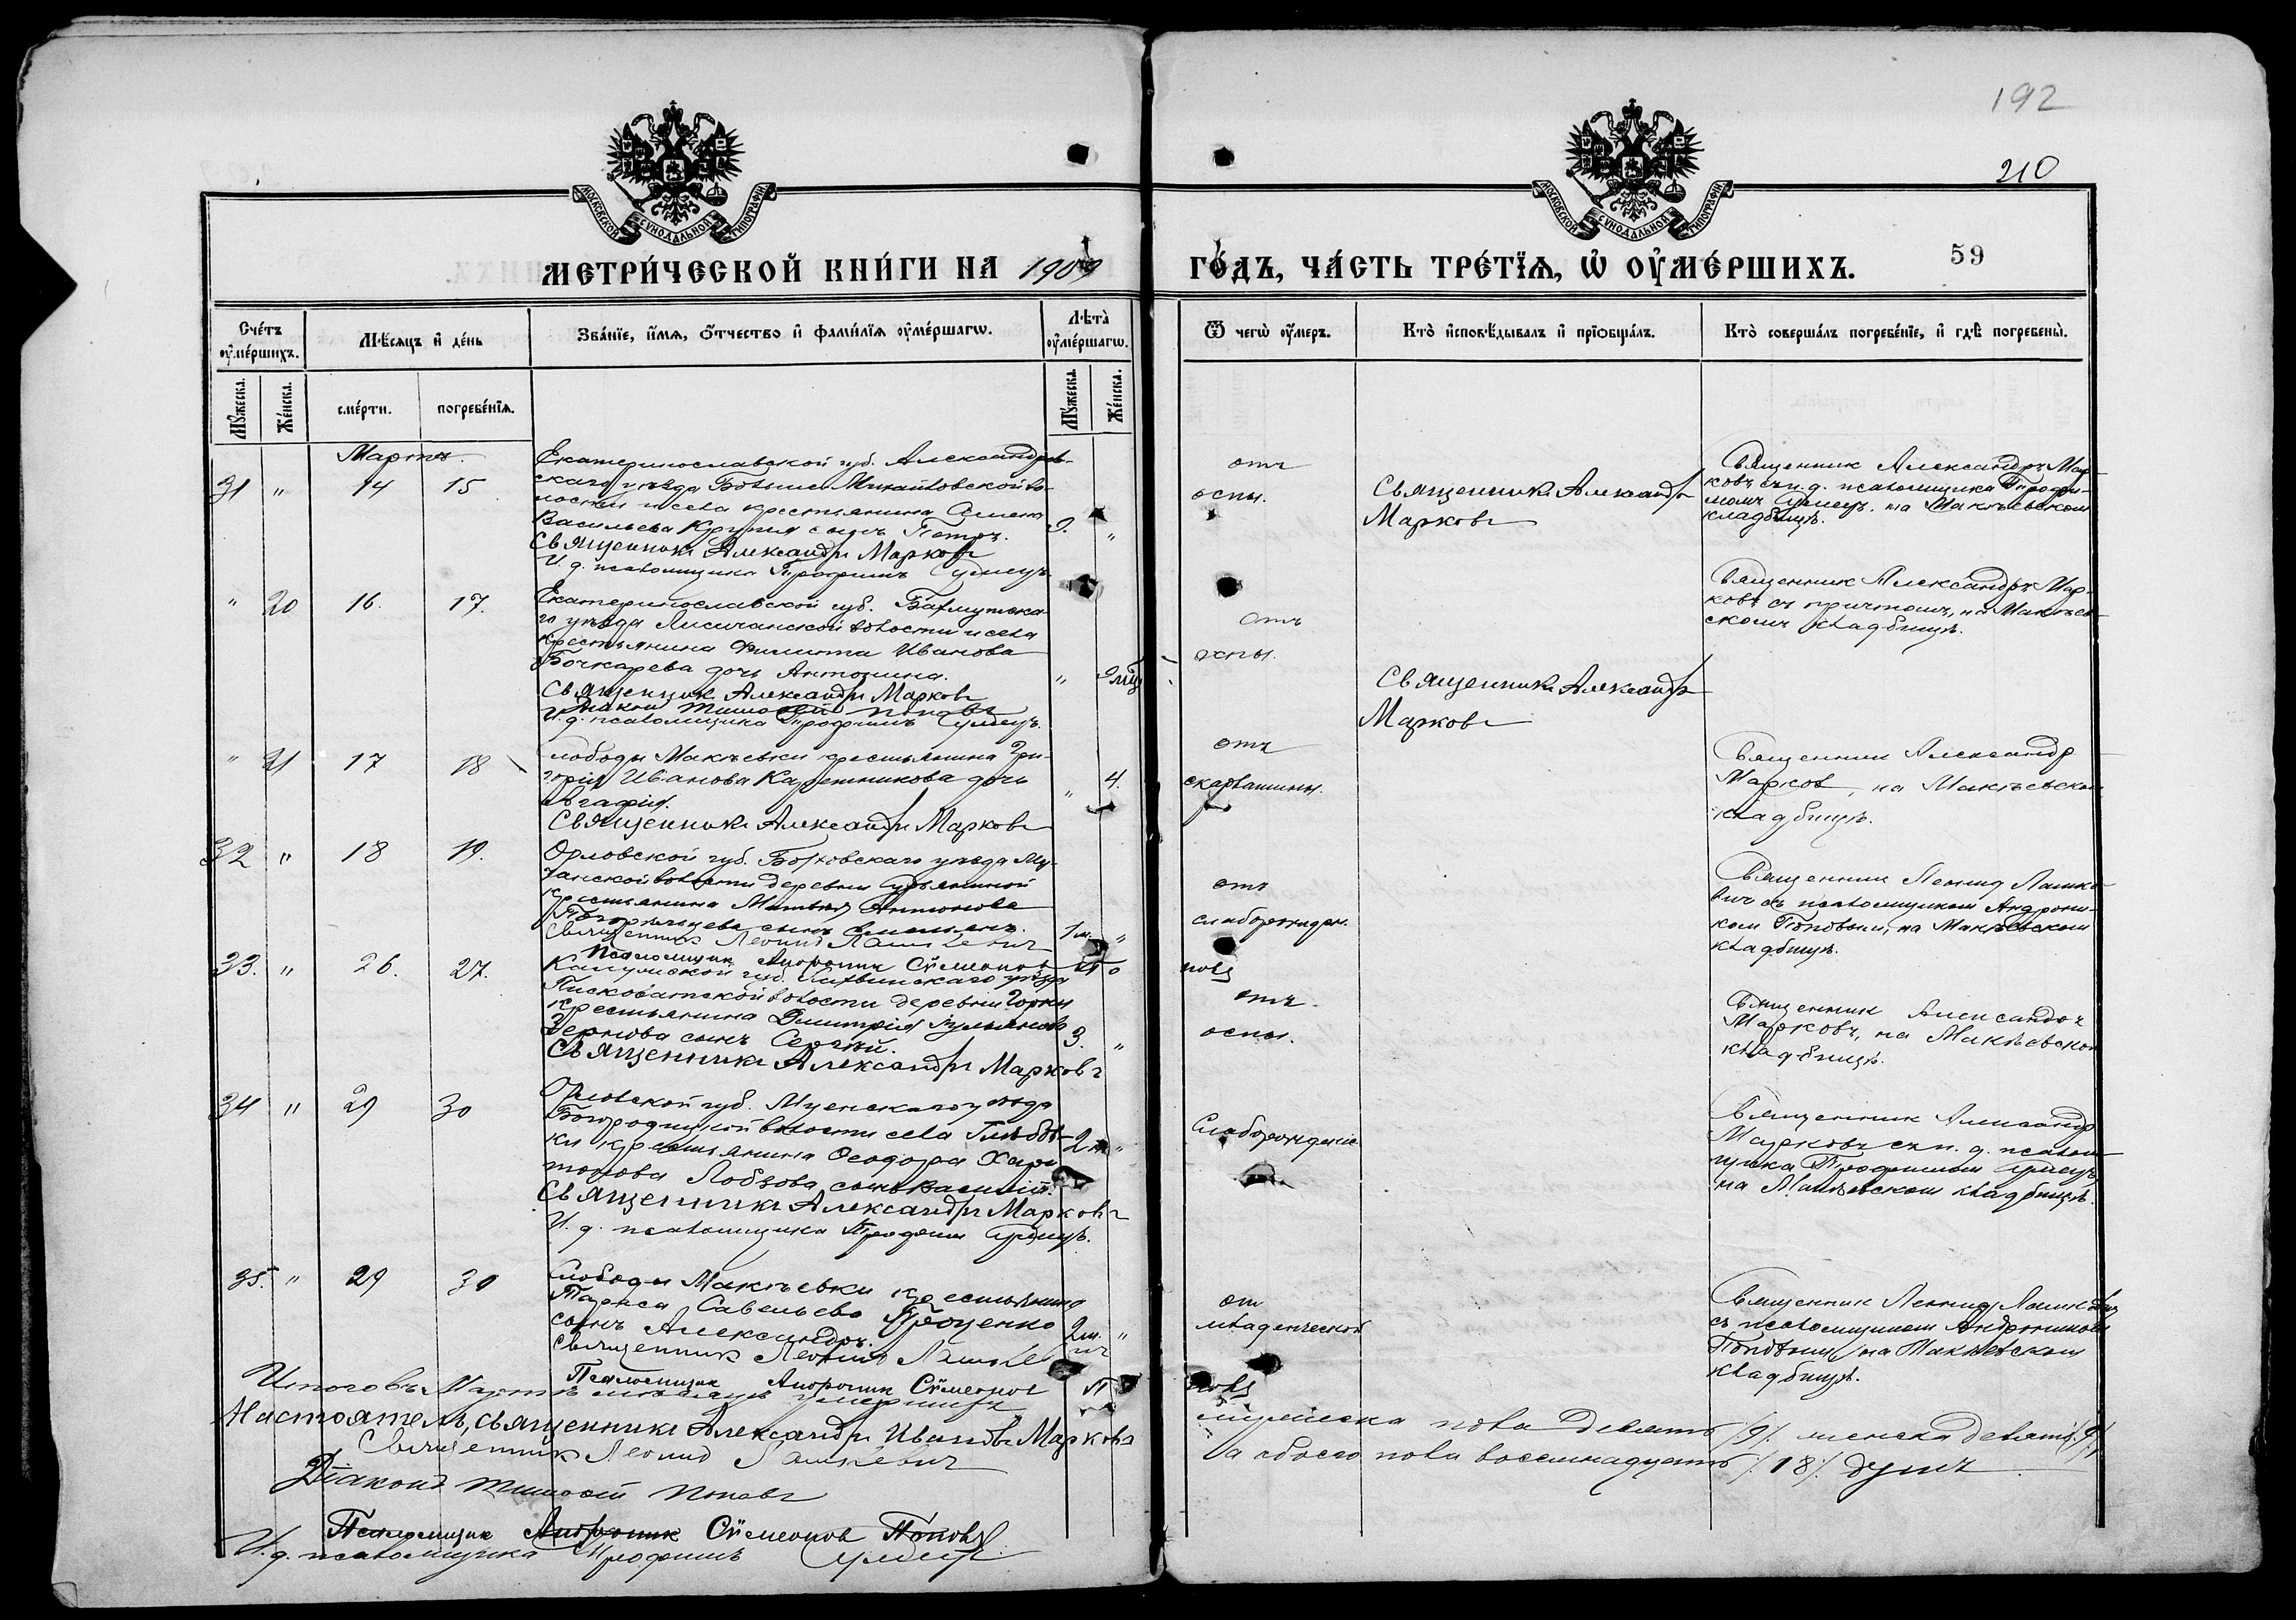 192
210
МОСКОВСКОЙ СѴНОДАЛЬНОЙ ТИПОГРАФІИ
МОСКОВСКОЙ СѴНОДАЛЬНОЙ ТИПОГРАФІИ
МЕТРИ́ЧЕСКОЙ КНИ́ГИ НА 1909 ГО́ДЪ, ЧА́СТЬ ТРЕ́ТЇѦ, Ѡ҆ ОУ҆МЕ́РШИХЪ.
59
Сче́тъ оу҆ме́ршихъ.
Мѣ́сѧцъ и҆ де́нь
Зва́нїе, и҆́мѧ, ѻ҆́тчество и҆ фами́лїѧ оу҆ме́ршагѡ.
Лѣта̀ оу҆ме́ршагѡ.
Ѿ чегѡ̀ оу҆́меръ.
Кто̀ и҆сповѣ́дывалъ и҆ прїѻбща́лъ.
Кто̀ соверша́лъ погребе́нїе, и҆ гдѣ̀ погребены̀.
Мꙋ́жеска.
Же́нска.
сме́рти.
погребе́нїѧ.
Мꙋ́жеска.
Же́нска.
Мартъ.
31 " 14 15
Екатеринославской губ. Александров-
скаго уѣзда Больше Михайловской во-
лости и села крестьянина Семена
Васильева Крупія сынъ Петръ.
9. "
Священникъ Александръ Марковъ
И. д. псаломщика Трофимъ
отъ
оспы.
Священникъ Александръ
Марковъ
Священник Александръ Мар-
ковъ съ и. д. псаломщика Трофи-
момъ на Макѣевском
кладбищѣ.
" 20 16. 17.
Екатеринославской губ. Бахмутска-
го уѣзда Лисичанской волости и села
крестьянина Филиппа Иванова
Бочкарева дочь Антонина.
" 9 мц
Священникъ Александръ Марковъ
Діакон Тимофей Поповъ
И. д. псаломщика Трофимъ
отъ
оспы.
Священникъ Александръ
Марковъ
Священник Александръ Мар-
ковъ съ причтомъ, на Макѣев-
скомъ кладбищѣ.
" 21 17 18
слободы Макѣевки крестьянина Гри-
горія Иванова Каретникова дочь
Агафія.
" 4.
Священникъ Александръ Марковъ
отъ
скарлатины.
Священник Александр
Марков, на Макѣевском
кладбищѣ.
32 " 18 19.
Орловской губ. Болховскаго уѣзда
волости деревни
крестьянина Антонова
сынъ
1 м. "
Священник Леонид Лашкевич
Псаломщик Андроник Сѵмеонов
Попов
отъ
слаборожден.
Священник Леонид Лашке-
вич съ псаломщиком Андрони-
ком Поповым, на Макѣевском
кладбищѣ.
33. " 26. 27.
Калужской губ. Лихвинскаго уѣзда
Песковатской волости деревни Горки
крестьянина Димитрія
сынъ Сергѣй.
3. "
Священникъ Александръ Марковъ
отъ
оспы.
Священник Александръ
Марковъ, на Макѣевском
кладбищѣ.
34 " 29 30
Орловской губ. Мценскаго уѣзда
Богородицкой волости села Глѣбов-
ки крестьянина Ѳеодора Хари-
тонова Лобзова сынъ Василій.
2 м "
Священникъ Александръ Марковъ
И. д. псаломщика Трофим
Слаборожденіе
Священник Александр
Марковъ съ и. д. псалом-
щика Трофимом
на Макѣевском кладбищѣ.
35. " 29 30
Слободы Макѣевки крестьянина
Тараса Савельева Проценко
сынъ Александръ.
2 м. "
Священник Леонид Лашкевич
Псаломщик Андроник Сѵмеонов Попов
от
младенческой
Священник Леонид Лашкевич
съ псаломщиком Андроником
Поповым, на Макѣевском
кладбищѣ.
Итого въ Мартѣ мѣсяцѣ умершихъ
мужеска пола девять /9/. женска девять /9/.
а обоего пола восемнадцать /18/. душъ
Настоятель, священникъ Александръ Ивановъ Марковъ
Священник Леонид Лашкевич
Діаконъ Тимофей Поповъ
Псаломщик Андроник Сѵмеонов Поповъ
И. д. псаломщика Трофимъ